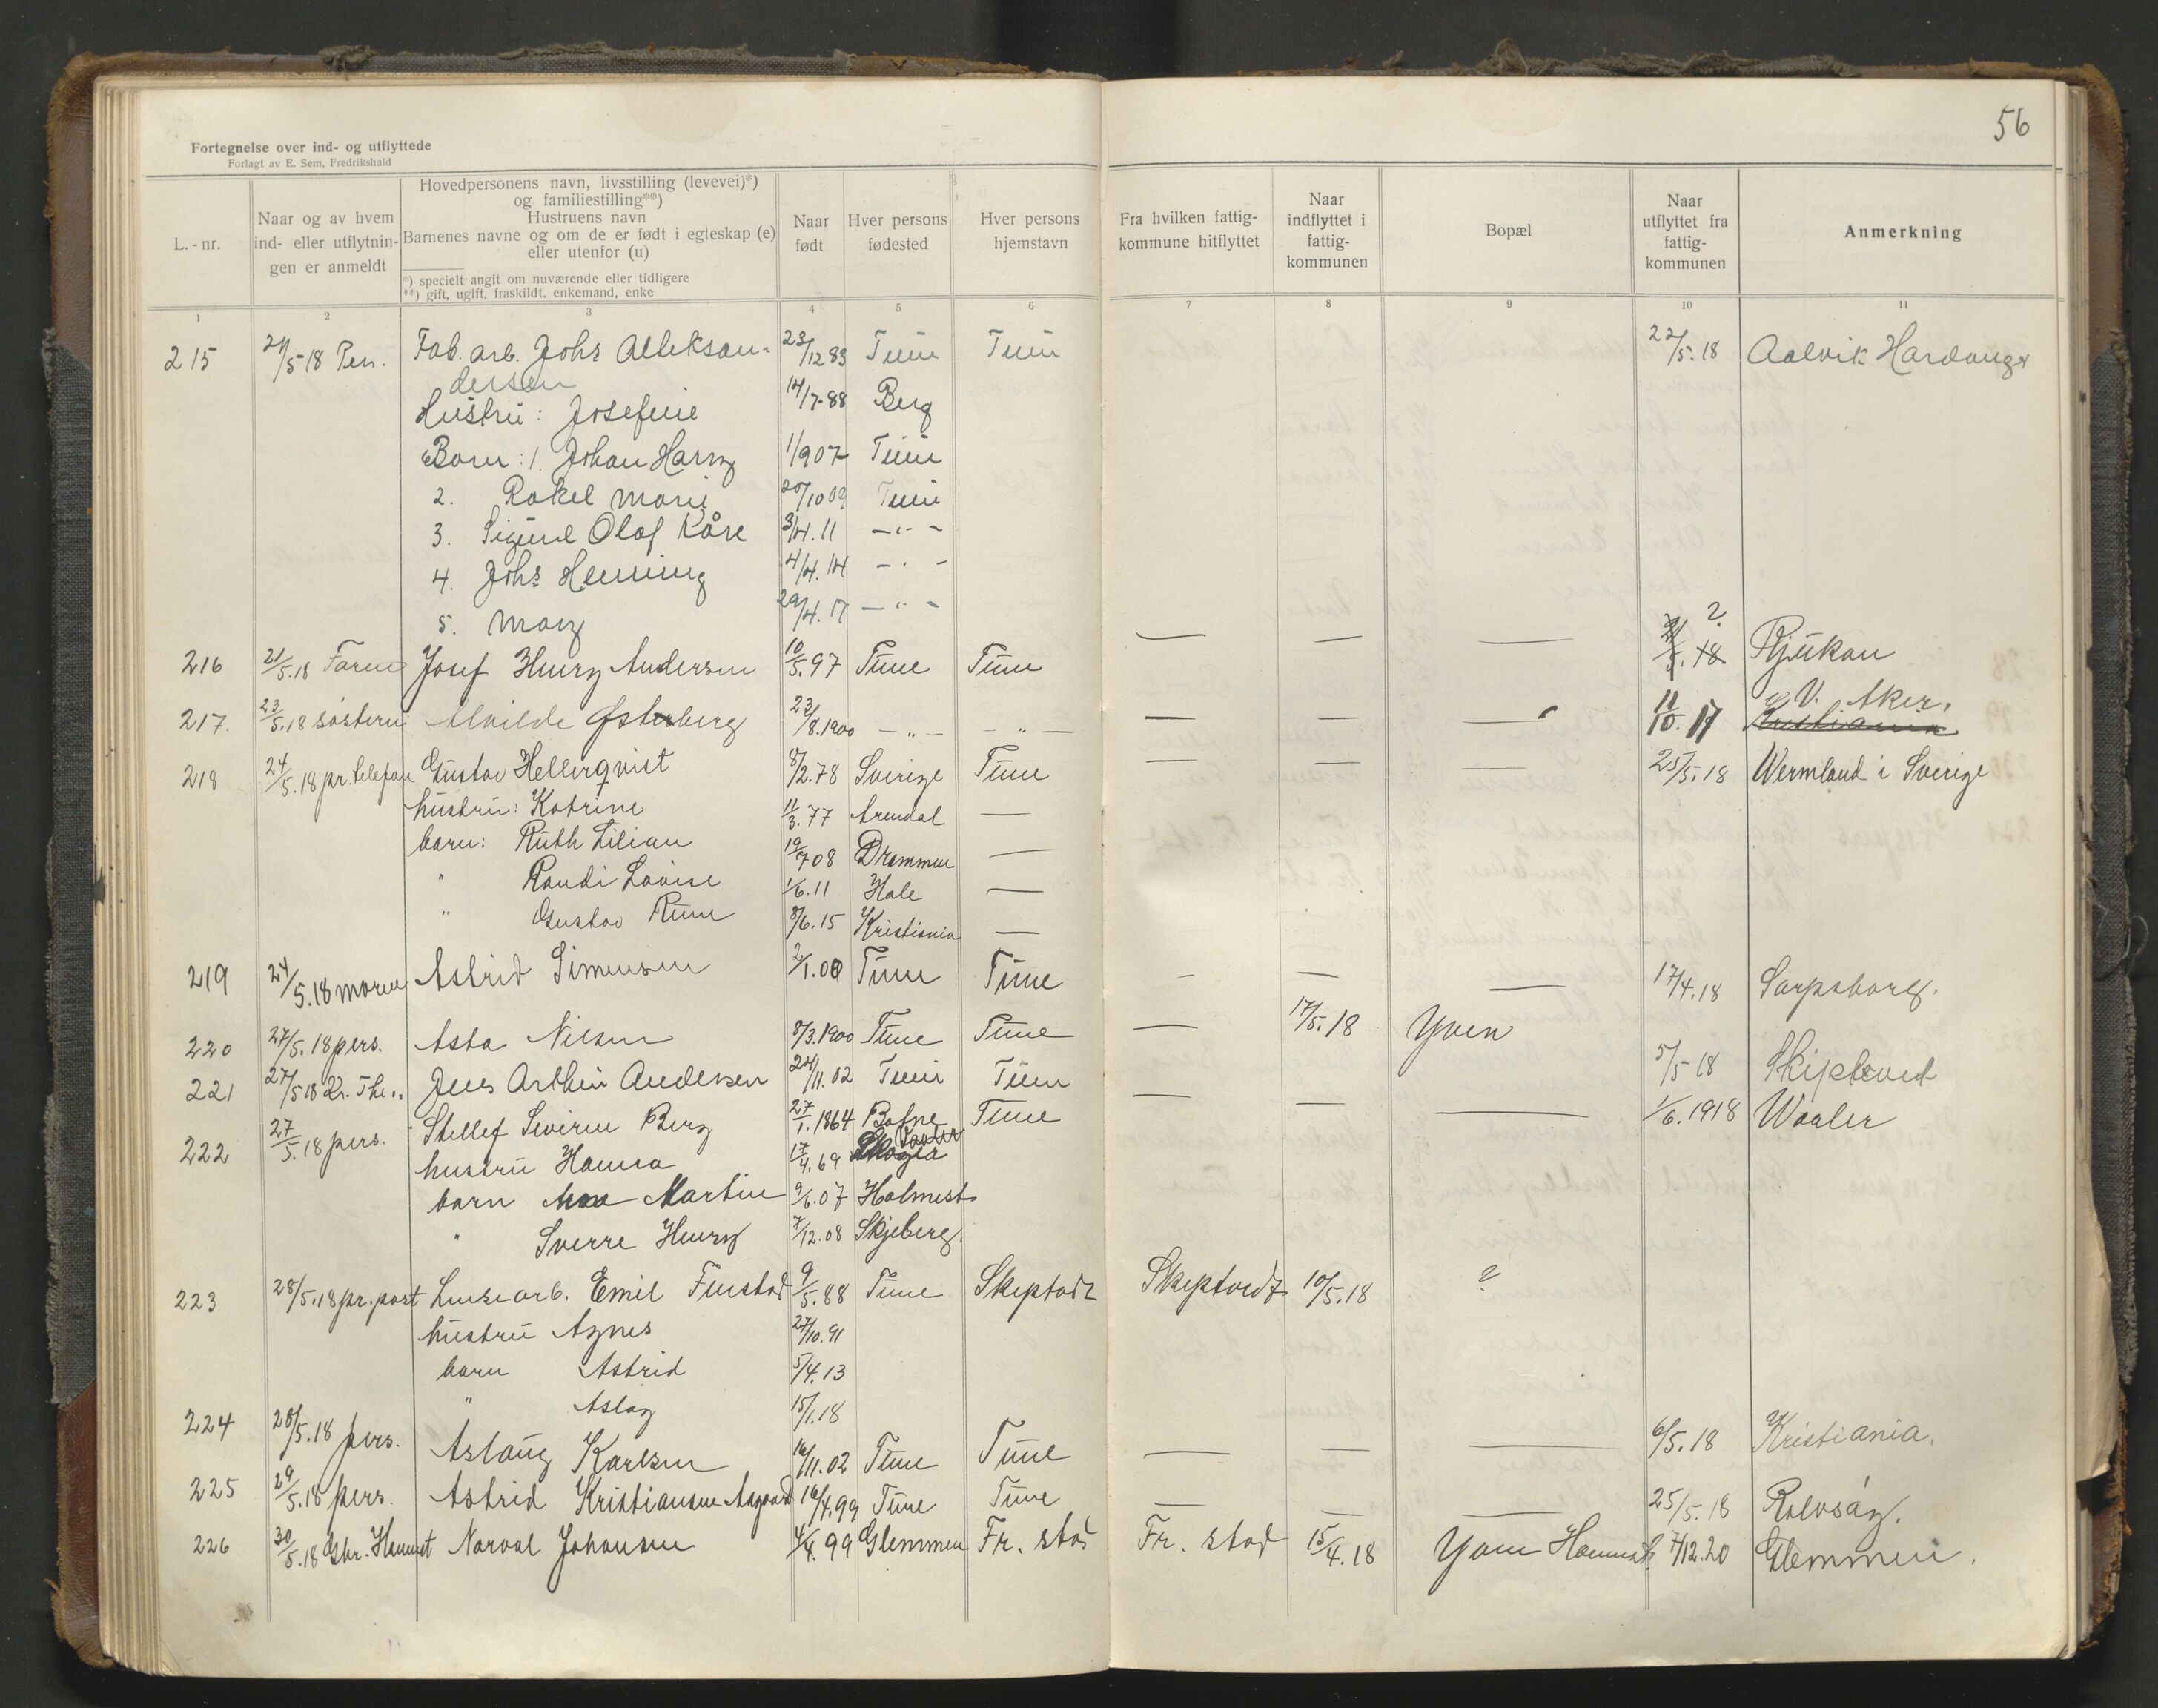 56
Fortegnelse over ind- og utflyttede
Forlagt av E. Sem, Fredrikshald
L.-nr.
Naar og av hvem
ind- eller utflytnin-
gen er anmeldt
Hovedpersonens navn, livsstilling (levevei)*)
og familiestilling**)
Hustruens navn
Barnenes navne og om de er født i egteskap (e)
eller utenfor (u)
*) specielt angit om nuværende eller tidligere
**) gift, ugift, fraskildt, enkemand, enke
Naar
født
Hver persons
fødested
Hver persons
hjemstavn
Fra hvilken fattig-
kommune hitflyttet
Naar
indflyttet i
fattig-
kommunen
Bopæl
Naar
utflyttet fra
fattig-
kommunen
Anmerkning
1 2 3 4 5 6 7 8 9 10 11
215 21/5-18 Pers. Fab. arb. Johs Alleksan- 23/12 83 Tune Tune 22/5.18 Aalvik Hardanger
dersen
Hustru: Josefine 14/7-88 Berg
Børn: 1. Johan Harry 1/9 07 Tune
2. Rakel Marie 20/10 09 Tune
3. Sigurd Olaf Kåre 3/4.11 - " -
4. Johs Henning 4/4.14 - " -
5. Mary 29/4.17 - " -
216 21/5.18 Faren Josef Henry Andersen 10/5.97 Tune Tune — — — ? 5.18 Rjukan
217. 23/5.18 søsteren Alvilde Østerberg 23/8.1900 - " - - " - — — — 11/10.17 Kristiania V. Aker.
218 24/5.18 pr. telefon Gustav Hellerqvist 8/2.78 Sverige Tune — — — 25/5.18 Wermland i Sverige
hustru: Katrine 11/3.77 Arendal —
barn: Ruth Lilian 19/7 08 Drammen —
" Randi Lovise 1/6.11 Hole —
" Gustav Rune 8/6.15 Kristiania —
219 24/5.18 moren Astrid Simensen 2/1.00 Tune Tune - — — 17/4.18 Sarpsborg.
220 27/5.18 pers. Asta Nilsen 8/3.1900 Tune Tune — 17/5.18 Yven
221 27/5 18 Kr. The.. Jens Arthur Andersen 24/11.02 Tune Tune — — — 5/5 18 Skiptved
222 27/5.18 pers. Stellef Severin Berg 27/1.1864 Botne Tune 1/6.1918 Waaler
hustru Hanna 17/4.69 Vaaler
barn Martin 9/6.07 Holmest
" Sverre Henry 7/12.08 Skjeberg.
223 28/5.18 pr. post Emil Finstad 9/5.88 Tune Skeptvedt Skeptvedt 10/5.18 ?
hustru Agnes 27/10.91
barn Astrid 5/4.13
" Aslag 15/1.18
224 28/5.18 pers. Aslaug Karlsen 16/11.02 Tune Tune — — — 6/5.18 Kristiania.
225 29/5.18 pers. Astrid Kristiansen Aagaard 16/4.99 Tune Tune — — — 25/5.18 Rolvsøy.
226 30/5.18 Gbr. Hannest Narval Johansen 4/4.99 Glemmen Fr. stad Fr. stad 15/4.18 Yven Hannest. 7/12.20 Glemmen.